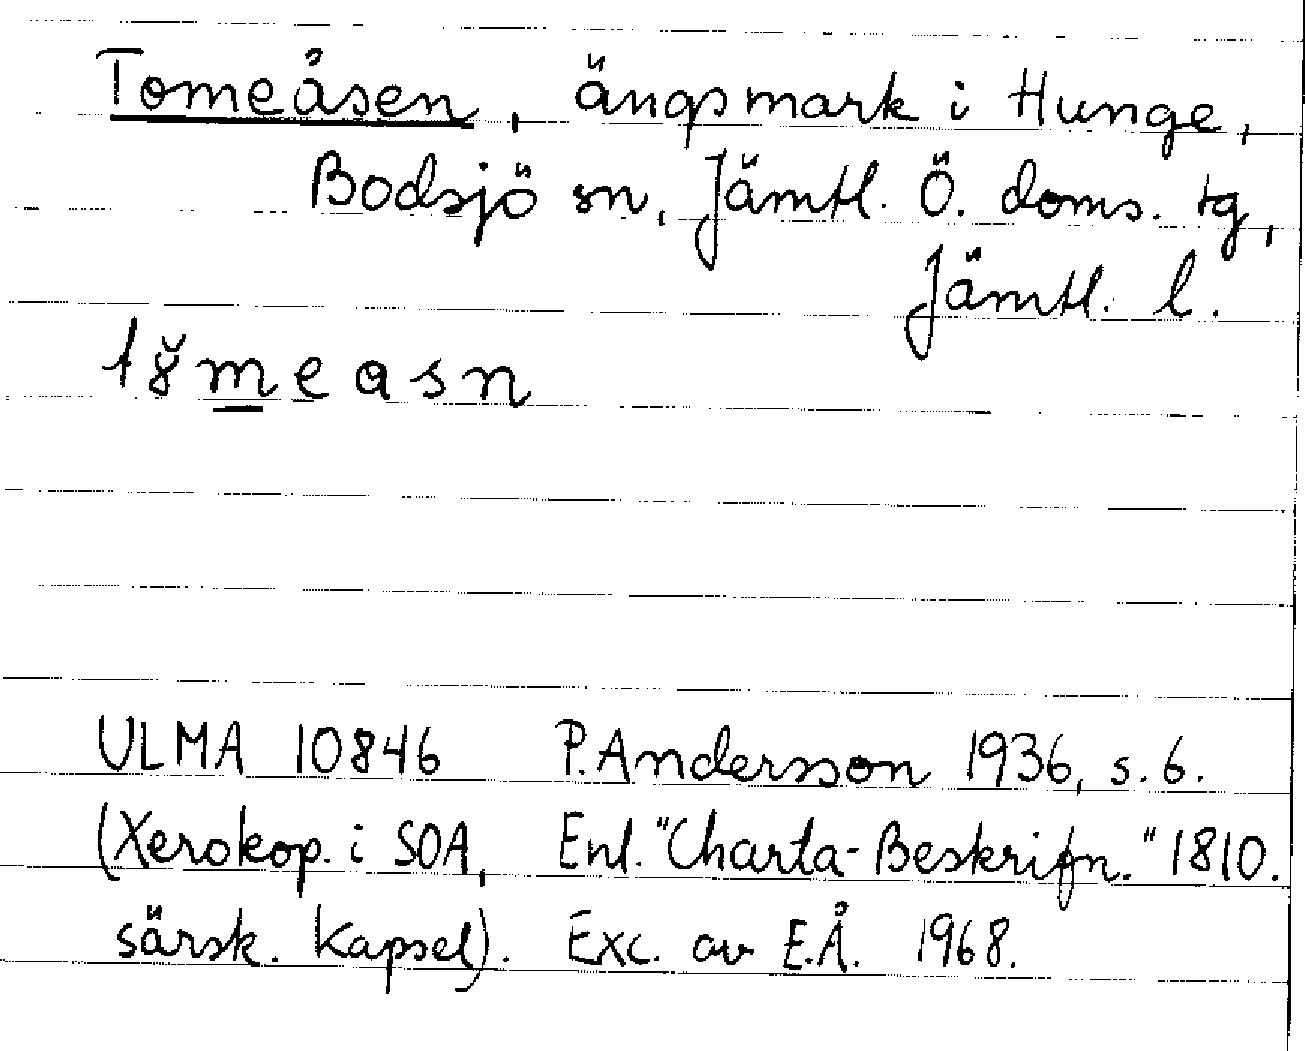 Tomeåsen, ängsmark i Hunge,
Bodsjö sn, Jämtl. Ö. doms. tg,
Jämtl. l.
ULMA 10846 P. Andersson 1936, s. 6.
(Xerokop. i SOA, Enl. "Charta-Beskrifn." 1810.
särsk. kapsel). Exc. av E.Å. 1968.